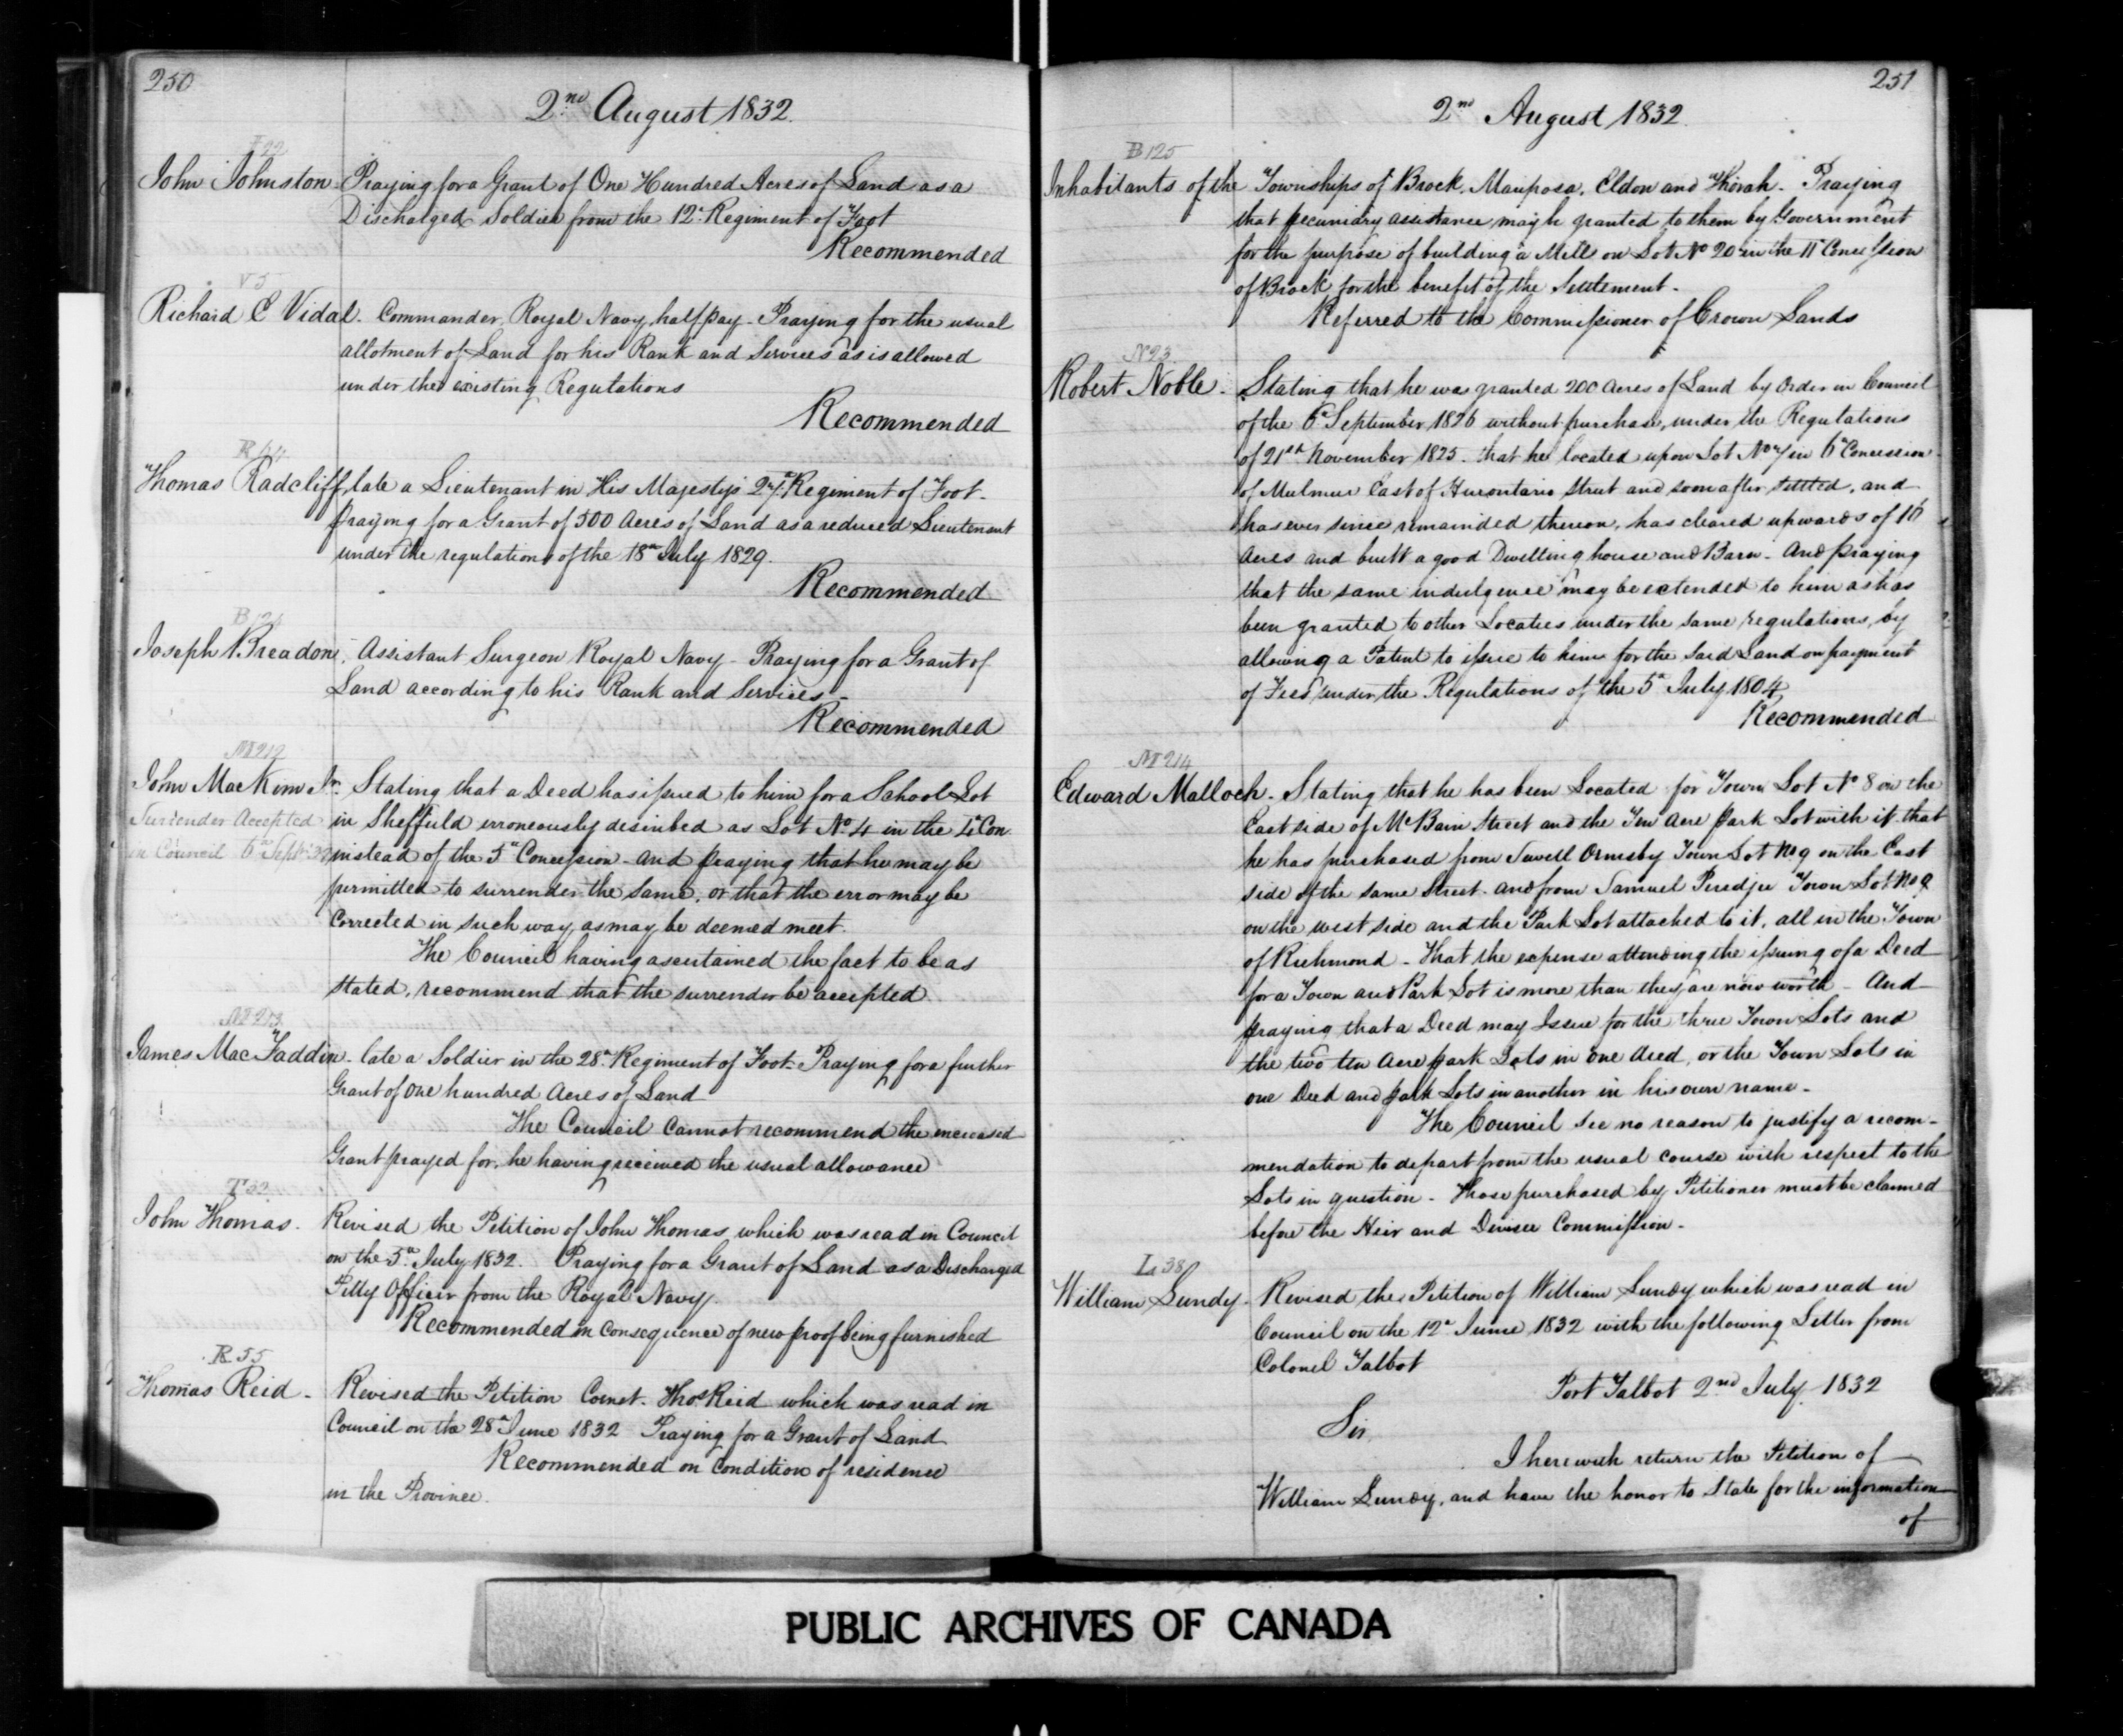 250
2nd August 1832.
J 22
John Johnston Praying for a Grant of One Hundred Acres of Land as a
Discharged Soldier from the 12th Regiment of Foot
Recommended
V 5
Richard E Vidal. Commander, Royal Navy, half pay - Praying for the usual
allotment of Land for his Rank and Services as is allowed
under the existing Regulations
Recommended
Thomas Radcliff, late a Lieutenant in His Majesty's 27th Regiment of Foot.
praying for a Grant of 500 Acres of Land as a reduced Lieutenant
under the regulations of the 18th July 1829.
Recommended
B 124
Joseph Breadon, Assistant Surgeon Royal Navy - Praying for a Grant of
Land according to his Rank and Services -
Recommended
M 212
John MacKim Jnr Stating that a Deed has issued to him for a School Lot
Surrender Accepted in Sheffield erroneously desinbed as Lot No 4 in the 4th Con.
in Council 6th Sept. 32 instead of the 5th Concession - and praying that he may be
permitted to surrender the same, or that the error may be
corrected in such way, as may be deemed meet.
The Council having ascertained the fact to be as
stated, recommend that the surrender be accepted
M 213
James MacFaddin - late a Soldier in the 28th Regiment of Foot - Praying for a further
Grant of One hundred Acres of Land
The Council cannot recommend the increased
Grant prayed for, he having received the usual allowance
T 32
John Thomas. Revised the Petition of John Thomas which was read in Council
on the 5th July 1832. Praying for a Grant of Land as a Discharged
Petty Officer from the Royal Navy.
Recommended in consequence of new proof being furnished
R 55
Thomas Reid - Revised the Petition Cornet. Thos Reid which was read in
Council on the 28th June 1832 Praying for a Grant of Land
Recommended on condition of residence
in the Province.
251
2nd August 1832.
B 125
Inhabitants of the Townships of Brock, Mariposa, Eldon and Thorah - Praying
that pecuniary assistance may be granted to them by Government
for the purpose of building a Mill on Lot No 20 in the 11th Concession
of Brock for the benefit of the Settlement -
Referred to the Commissioner of Crown Lands
N 23
Robert Noble - Stating that he was granted 200 Acres of Land by Order in Council
of the 6th September 1826 without purchase, under the Regulations
of 21st November 1825 - that he located upon Lot No 7 in 6th Concession
of Mulmur East of Hurontario Street and soon after settled, and
has ever since remainded thereon, has cleared upwards of 16
Acres and built a good Dwelling house and Barn - And praying
that the same indulgence may be extended to him as has
been granted to other Locatees under the same regulations, by
allowing a Patent to issue to him for the said Land on payment
of Fees under the Regulations of the 5th July 1804
Recommended
M 214
Edward Malloch - Stating that he has been Located for Town Lot No 8 on the
East side of McBain Street and the Ten Acre Park Lot with it that
he has purchased from Sewell Ormsby Town Lot No 9 on the East
side of the same Street - and from Samuel Town Lot No 9
on the west side and the Park Lot attached to it, all in the Town
of Richmond - That the expense attending the issuing of a Deed
for a Town and Park Lot is more than they are now worth - And
praying that a Deed may Issue for the three Town Lots and
the two ten Acre park Lots in one deed, or the Town Lots in
one Deed and park Lots in another in his own name -
The Council see no reason to justify a recom-
mendation to depart from the usual course with respect to the
Lots in question - Those purchased by Petitioner must be claimed
before the Heir and Devisee Commission -
L 38
William Lundy - Revised the Petition of William Lundy which was read in
Council on the 12th June 1832 with the following Letter from
Colonel Talbot
Port Talbot 2nd July 1832
Sir
I herewith return the Petition of
William Lundy, and have the honor to State for the information
of
PUBLIC ARCHIVES OF CANADA